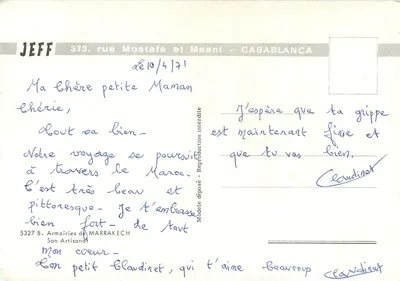 JEFF 373. rue Mostafa el Maani - CASABLANCA
Le 10/4/71
Ma Chère petite Maman
Chérie,
Tout va bien -
Notre voyage se poursuit
à travers le Maroc.
C'est très beau et
pittoresque - Je t'embrasse
bien fort - de tout
mon coeur -
Ton petit Claudinet, qui t'aime beaucoup Claudinet
J'espère que ta grippe
est maintenant finie et
que tu vas bien.
Claudinet
Modèle déposé - Reproduction interdite
5327 B. Armoiries de MARRAKECH
Son Artisanat